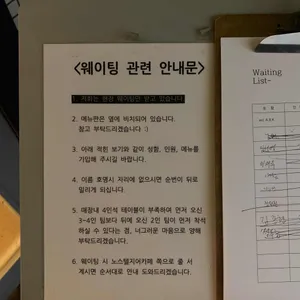 <웨이팅 관련 안내문>
1. 저희는 현장 웨이팅만 받고 있습니다.
2. 메뉴판은 옆에 비치되어 있습니다.
참고 부탁드리겠습니다 :)
3. 아래 적힌 보기와 같이 성함, 인원, 메뉴를
기입해 주시길 바랍니다.
4. 이름 호명시 자리에 없으시면 순번이 뒤로
밀리게 되십니다.
5. 매장내 4인석 테이블이 부족하여 먼저 오신
3~4인 팀보다 뒤에 오신 2인 팀이 먼저 착석
하실 수 있다는 점, 너그러운 마음으로 양해
부탁드리겠습니다.
6. 웨이팅 시 노스텔지어카페 쪽으로 줄 서
계시면 순서대로 안내 도와드리겠습니다.
Waiting
List-